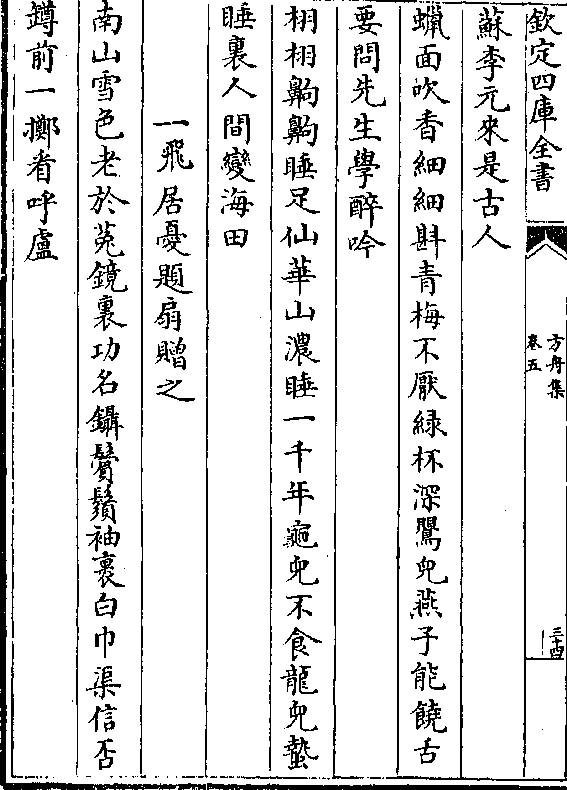 欽定四庫全書
方舟集
卷五
三十四
蘇李元來是古人
蠟面吹香細細斟青梅不厭緑杯深鶯兒燕子能饒舌
要問先生學醉吟
栩栩齁齁睡足仙華山濃睡一千年龜兒不食龍兒蟄
睡裏人間變海田
一飛居憂題扇贈之
南山雪色老於菟鏡裏功名鑷鬢鬚袖裏白巾渠信否
罇前一擲看呼盧